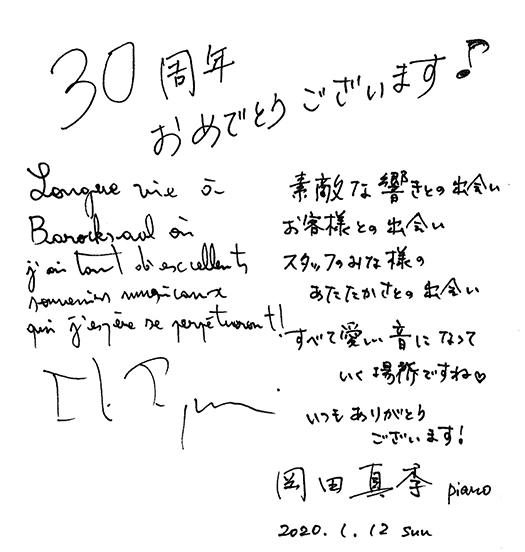 30周年
おめでとうございます♪
Longue vie à
Barocksaal où
j'ai tant d'excellents
souvenirs musicaux
qui j'espère se perpétueront!
素敵な響きとの出会い
お客様との出会い
スタッフのみな様の
あたたかさとの出会い
すべて愛しい音になって
いく場所ですね♡
いつもありがとう
ございます!
岡田真季 piano
2020.1.12 sun